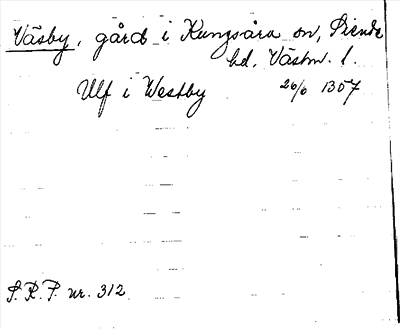 Väsby, gård i Kungsåra sn, Siende
hd, Västm. l.
Ulf i Westby 20/6 1307
S.R.P. nr. 312